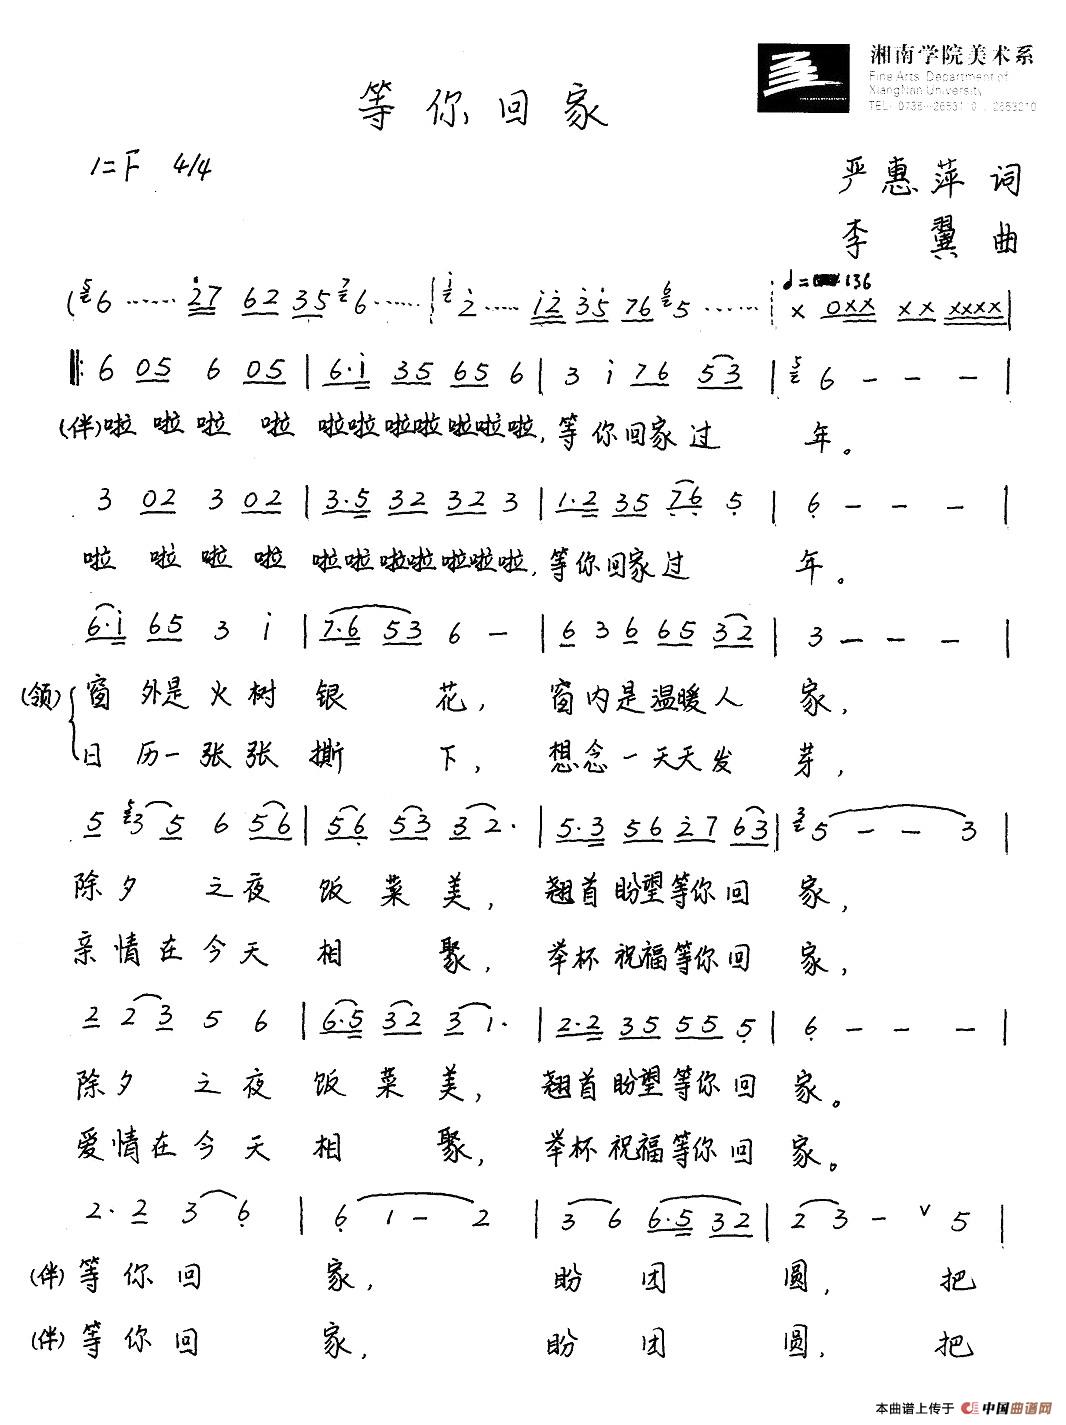 湘南学院美术系
Fine Arts Department of
XiangNan University
TEL: 0735-2653110 2653210
等你回家
1=F 4/4
严惠萍 词
李翼 曲
♩= 136
(5 6 ······ 2̇7 62 35 7 6 ······ | 1̇ 2̇ ······ 1̇2̇ 3̇5̇ 76 6 5 ······ | × 0×× ×× ×××× |
‖: 6 05 6 05 | 6·1̇ 35 65 6 | 3 1̇ 76 53 | 5 6 - - - |
(伴)啦 啦啦 啦 啦啦啦啦啦啦啦,等你回家过 年。
3 02 3 02 | 3·5 32 32 3 | 1·2 35 7̣6̣ 5̣ | 6̣ - - - |
啦 啦啦啦 啦啦啦啦啦啦啦,等你回家过 年。
6·1̇ 65 3 1̇ | 7·6 53 6 - | 6 3 6 65 32 | 3 - - - |
(领) 窗外是火树银 花, 窗内是温暖人 家,
日历一张张撕 下, 想念一天天发 芽,
5 5 3 5 6 56 | 56 53 3 2· | 5·3 56 2̇7 63 | 3 5 - - 3 |
除夕 之夜饭菜美, 翘首盼望等你回 家,
亲情在今天相 聚, 举杯祝福等你回 家,
2 2 3 5 6 | 6·5 32 3 1· | 2·2 35 55 5̣ | 6̣ - - - |
除夕 之夜饭菜美, 翘首盼望等你回 家。
爱情在今天相 聚, 举杯祝福等你回 家。
2· 2 3 6̣ | 6̣ 1 - 2 | 3 6 6·5 32 | 2 3 - ∨ 5 |
(伴) 等你回 家, 盼团 圆, 把
(伴) 等你回 家, 盼团 圆, 把
本曲谱上传于 中国曲谱网